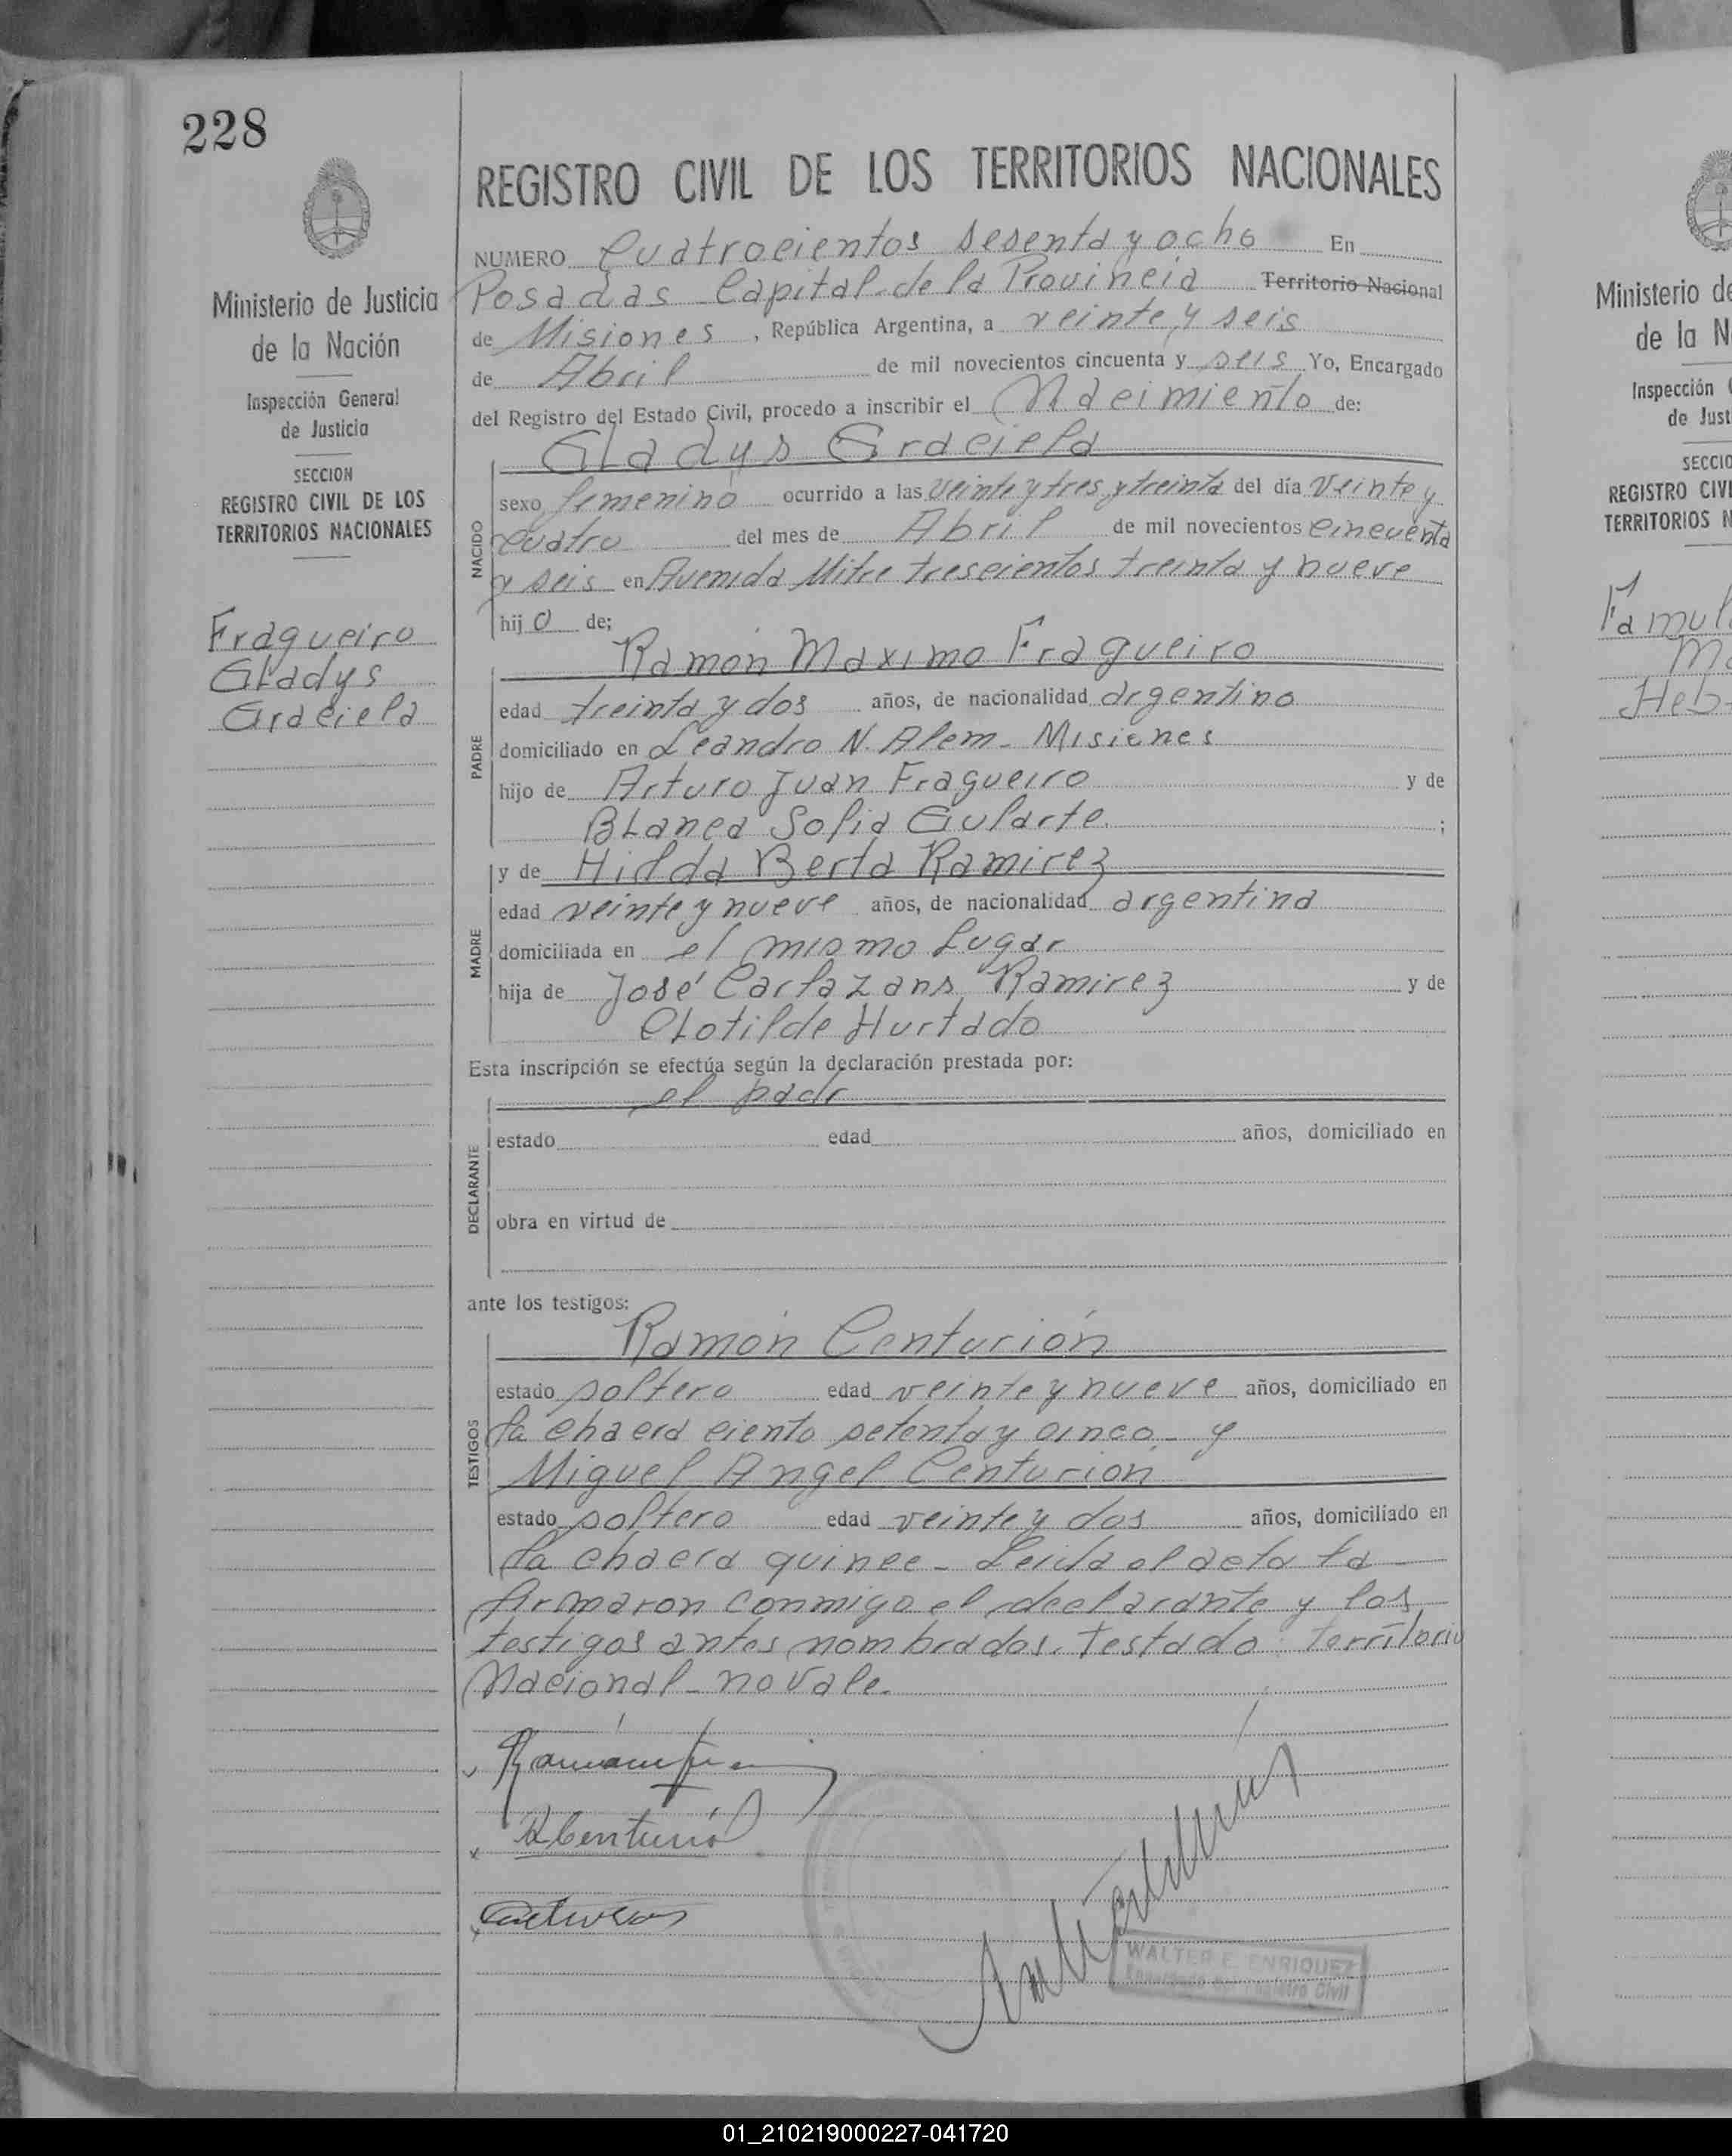 228
REGISTRO CIVIL DE LOS TERRITORIOS NACIONALES
Ministerio de Justicia
de la Nación
Inspección General
de Justicia
SECCION
REGISTRO CIVIL DE LOS
TERRITORIOS NACIONALES
Fragueiro
Gladys
Graciela
NUMERO Cuatrocientos sesenta y ocho En
Posadas Capital de la Provincia Territorio Nacional
de Misiones, República Argentina, a veinte y seis
de Abril de mil novecientos cincuenta y seis Yo, Encargado
del Registro del Estado Civil, procedo a inscribir el Nacimiento de:
Gladys Graciela
NACIDO
sexo femenino ocurrido a las veinte y tres y treinta del día veinte y
cuatro del mes de Abril de mil novecientos cincuenta
y seis en Avenida Mitre trescientos treinta y nueve
hij a de;
Ramón Maximo Fragueiro
PADRE
edad treinta y dos años, de nacionalidad argentino
domiciliado en Leandro N. Alem - Misiones
hijo de Arturo Juan Fragueiro y de
Blanca Sofia Gularte ;
y de Hilda Berta Ramirez
MADRE
edad veinte y nueve años, de nacionalidad argentina
domiciliada en el mismo lugar
hija de José Ramirez y de
Clotilde Hurtado
Esta inscripción se efectúa según la declaración prestada por:
el padr
DECLARANTE
estado edad años, domiciliado en
obra en virtud de
ante los testigos:
Ramón Centurión
TESTIGOS
estado soltero edad veinte y nueve años, domiciliado en
la chacra ciento setenta y cinco - y
Miguel Angel Centurion
estado soltero edad veinte y dos años, domiciliado en
la chacra quince - Leida el acta la
firmaron conmigo el declarante y los
testigos antes nombrados. Testado: Territorio
Nacional - no vale.
R Centurión
WALTER E. ENRIQUEZ
Encargado del Registro Civil
Ministerio de
de la N
Inspección
de Just
SECCIO
REGISTRO CIVI
TERRITORIOS N
Famul
Ma
Heb
01_210219000227-041720